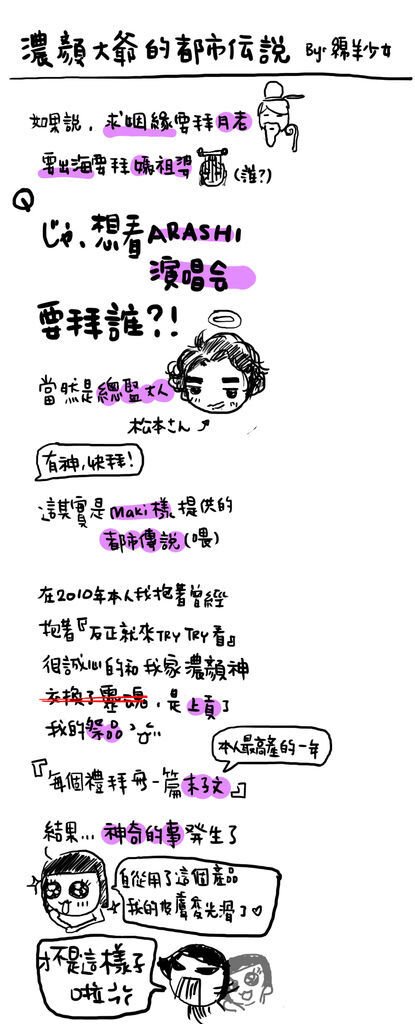 濃顏大爺的都市伝説 By:綿羊少女
如果說，求姻緣要拜月老
要出海要拜媽祖婆 (誰?)
Q
じゃ、想看ARASHI
演唱会
要拜誰?!
當然是總監大人
松本さん
有神，快拜!
這其實是Maki樣提供的
都市傳說(喂)
在2010年本人我抱著曾經
抱著『反正就來TRY TRY看』
很誠心的和我家濃顏神
交換了靈魂，是上貢了
我的祭品
本人最高產的一年
『每個禮拜飛一篇末子文』
結果...神奇的事發生了
自從用了這個產品
我的皮膚変光滑了♡
才不是這樣子
啦